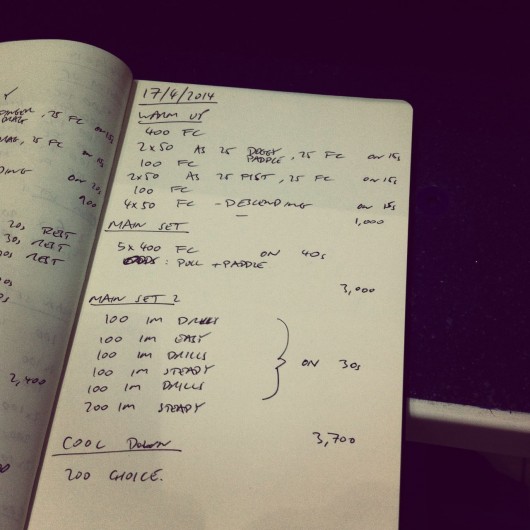 FC on 15s
, 25 FC on 15s
on 20s
900
20s REST
30s REST
REST
2,400
17/4/2014
WARM UP
400 FC
2x50 AS 25 DOGGY PADDLE, 25 FC on 15s
100 FC
2x50 AS 25 FIST, 25 FC on 15s
100 FC
4x50 FC - DESCENDING on 15s
1,000
MAIN SET
5x400 FC ON 40s
ODDS: PULL + PADDLE
3,000
MAIN SET 2
100 IM DRILLS
100 IM EASY
100 IM DRILLS
100 IM STEADY
100 IM DRILLS
200 IM STEADY
ON 30s
3,700
COOL DOWN
200 CHOICE.